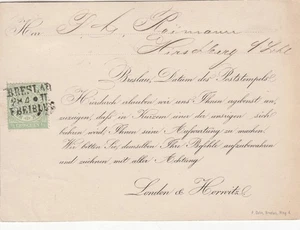 Herr
Hirschberg i/Schl
Breslau, Datum des Poststempels
BRESLAU
FREIBURG
Hierdurch erlauben wir uns Ihnen ergebenst an-
zuzeigen, dass in Kurzem einer der unsrigen sich
beehren wird Ihnen seine Aufwartung zu machen.
Wir bitten Sie, demselben Ihre Befehle aufzubewahren
und zeichnen mit aller Achtung
London & Horwitz